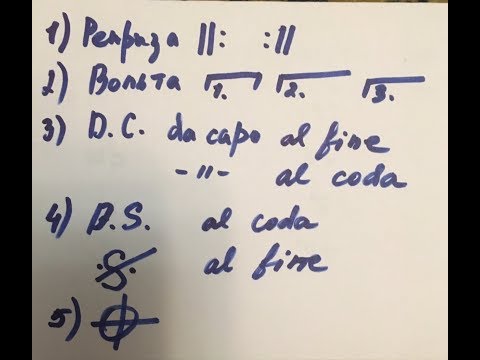 1) Реприза ||: :||
2) Вольта 1. 2. 3.
3) D.C. da capo al fine
-"- al coda
4) D.S. al coda
.S. al fine
5)